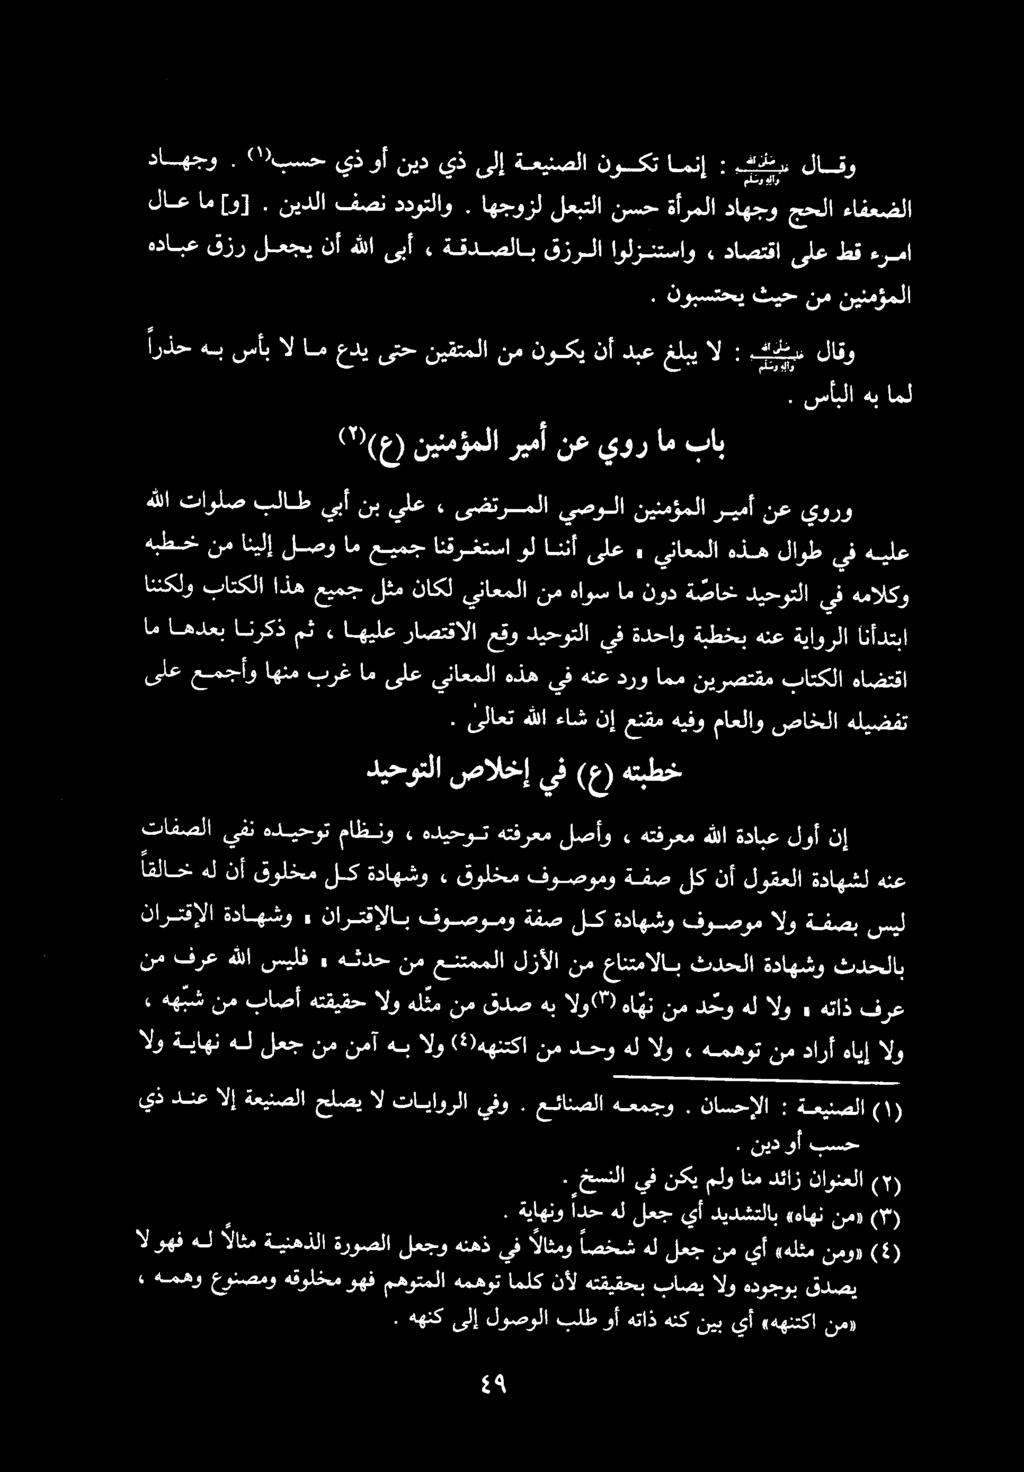 وقال صلى الله عليه وآله وسلم : إنما تكون الصنيعة إلى ذي دين أو ذي حسب(١) . وجهاد
الضعفاء الحج وجهاد المرأة حسن التبعل لزوجها . والتودد نصف الدين . [و] ما عال
امرء قط على اقتصاد ، واستنزلوا الرزق بالصدقة ، أبى الله أن يجعل رزق عباده
المؤمنين من حيث يحتسبون .
وقال صلى الله عليه وآله وسلم : لا يبلغ عبد أن يكون من المتقين حتى يدع ما لا بأس به حذراً
لما به البأس .
باب ما روي عن أمير المؤمنين (ع)(٢)
وروي عن أمير المؤمنين الوصي المرتضى ، علي بن أبي طالب صلوات الله
عليه في طوال هذه المعاني ، على أننا لو استغرقنا جميع ما وصل إلينا من خطبه
وكلامه في التوحيد خاصّة دون ما سواه من المعاني لكان مثل جميع هذا الكتاب ولكننا
ابتدأنا الرواية عنه بخطبة واحدة في التوحيد وقع الاقتصار عليها ، ثم ذكرنا بعدها ما
اقتضاه الكتاب مقتصرين مما ورد عنه في هذه المعاني على ما غرب منها وأجمع على
تفضيله الخاص والعام وفيه مقنع إن شاء الله تعالىٰ .
خطبته (ع) في إخلاص التوحيد
إن أول عبادة الله معرفته ، وأصل معرفته توحيده ، ونظام توحيده نفي الصفات
عنه لشهادة العقول أن كل صفة وموصوف مخلوق ، وشهادة كل مخلوق أن له خالقاً
ليس بصفة ولا موصوف وشهادة كل صفة وموصوف بالإقتران ، وشهادة الإقتران
بالحدث وشهادة الحدث بالامتناع من الأزل الممتنع من حدثه ، فليس الله عرف من
عرف ذاته ، ولا له وحّد من نهّاه(٣) ولا به صدق من مثّله ولا حقيقته أصاب من شبّهه ،
ولا إياه أراد من توهمه ، ولا له وحد من اكتنهه(٤) ولا به آمن من جعل له نهاية ولا
(١) الصنيعة : الإحسان . وجمعه الصنائع . وفي الروايات لا يصلح الصنيعة إلا عند ذي
حسب أو دين .
(٢) العنوان زائد منا ولم يكن في النسخ .
(٣) «من نهاه» بالتشديد أي جعل له حداً ونهاية .
(٤) «ومن مثله» أي من جعل له شخصاً ومثالاً في ذهنه وجعل الصورة الذهنية مثالاً له فهو لا
يصدق بوجوده ولا يصاب بحقيقته لأن كلما توهمه المتوهم فهو مخلوقه ومصنوع وهمه ،
«من اكتنهه» أي بين كنه ذاته أو طلب الوصول إلى كنهه .
٤٩